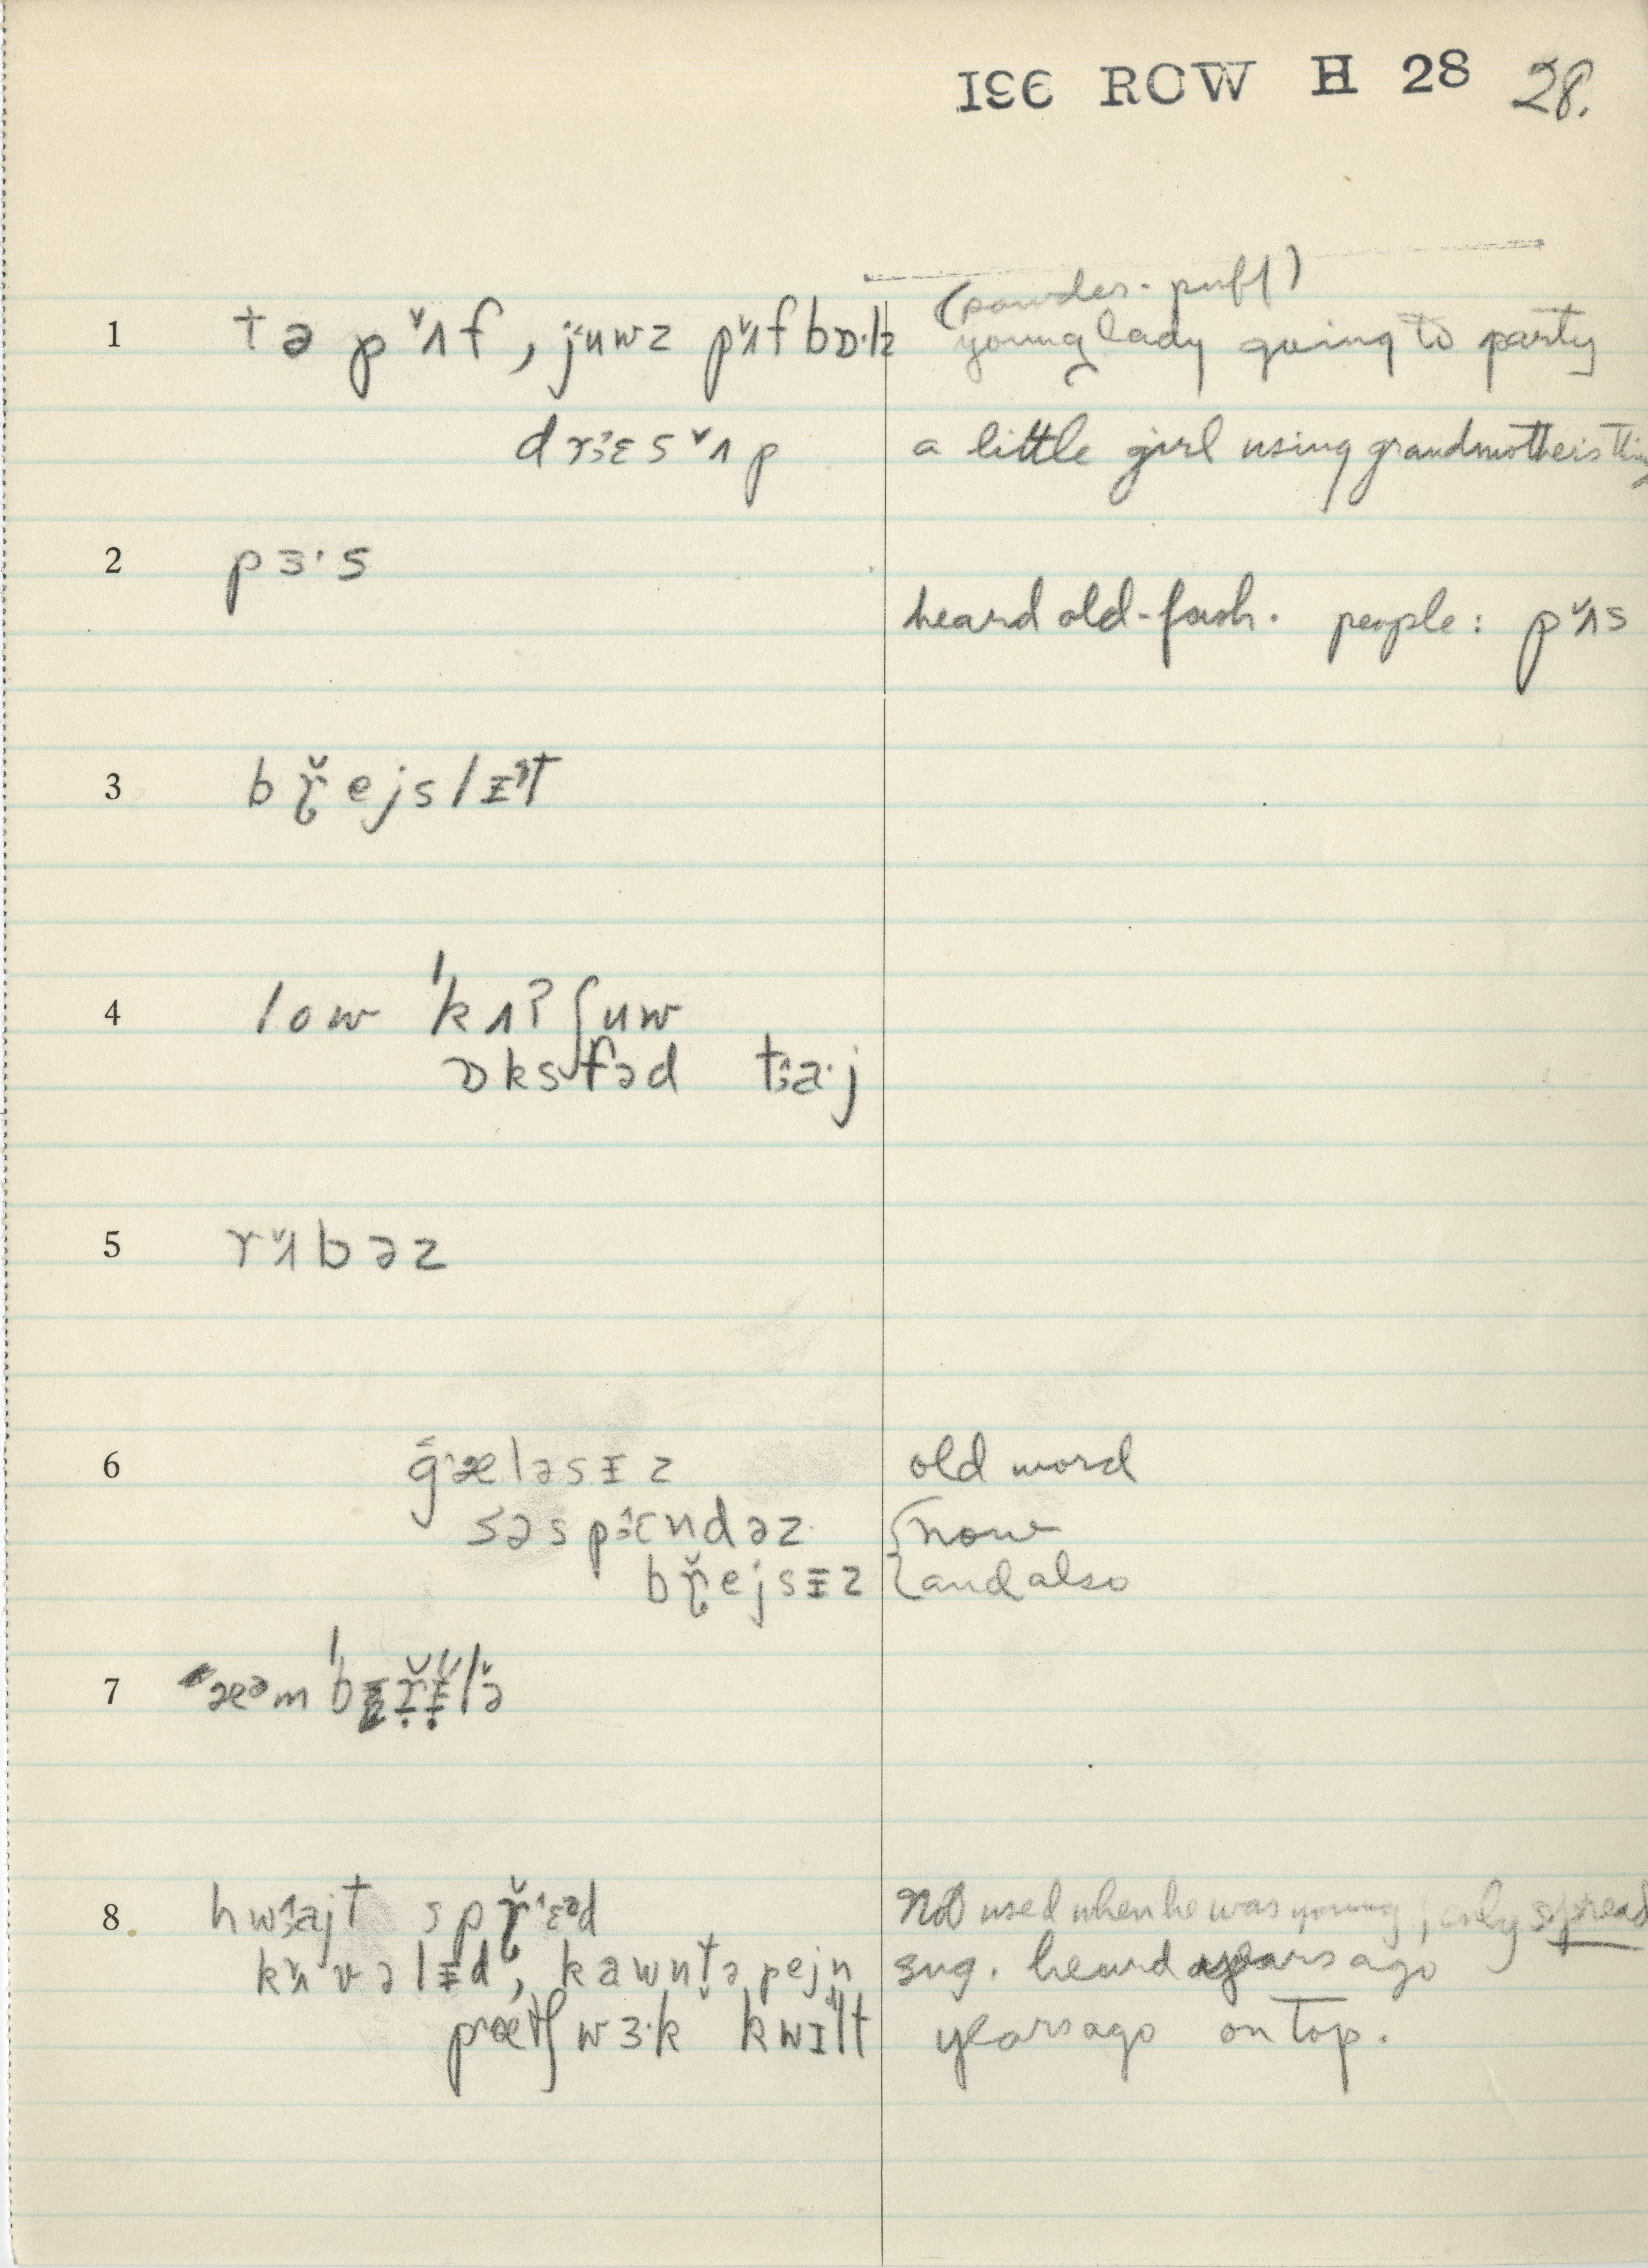 ISE ROW H 28 28.
(powder-puff)
1 tə pʌ̆f, juwz pʌ̆fbɒ·lz young lady going to party
drɛsʌ̆p a little girl using grandmother's thing
2 pɜ·s
heard old-fash. people: pʌ̆s
3 br̆ejslɪət
4 low 'kʌʔʃuw
ɒksfəd ta·j
5 rʌ̆bəz
6 gæləsɪz old word
səspɛndəz {now
br̆ejsɪz {and also
7 æəm'br̆ɪ̆lə̆
8. hwajt spr̆ɛəd Not used when he was young; only spread
kʌ̆vəlɪd, kawntəpejn sug. heard years ago
pætʃwɜ·k kwɪlt years ago on top.